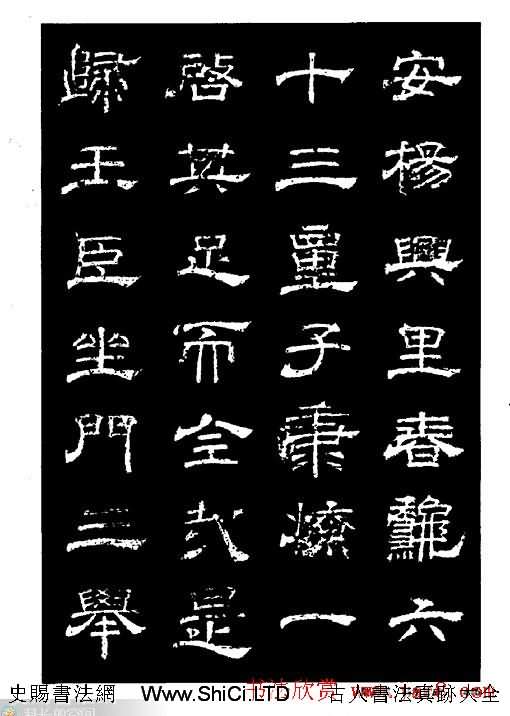 安楊興里春龝六
十三童子秉燎一
啓其足而全哉是
歸王臣坐門三舉
书法欣赏
史賜書法網 www.ShiCi.LTD 古人書法真跡大全